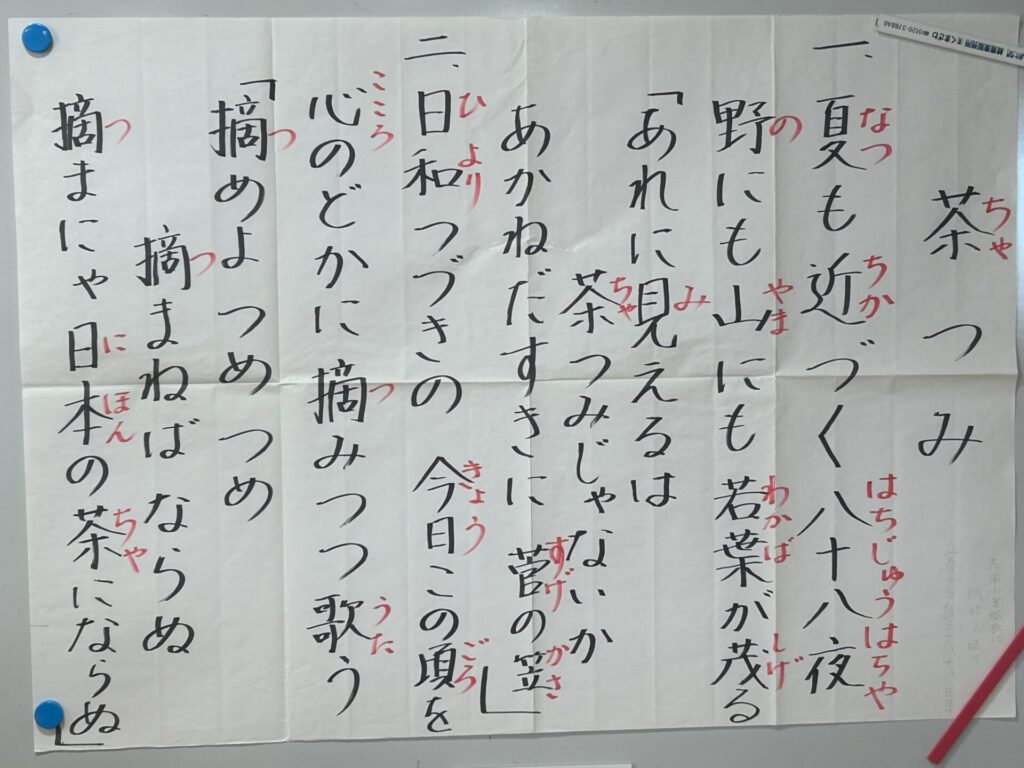 茶つみ
ちゃ
一、夏も近づく八十八夜
なつ ちか はちじゅうはちや
野にも山にも若葉が茂る
の やま わかば しげ
「あれに見えるは
み
茶つみじゃないか
ちゃ
あかねだすきに 菅の笠」
すげ かさ
二、日和つづきの 今日この頃を
ひより きょう ごろ
心のどかに摘みつつ歌う
こころ つ うた
「摘めよつめつめ つめ
つ
摘まねば ならぬ
つ
摘まにゃ日本の茶にならぬ」
つ にほん ちゃ
0120-378846